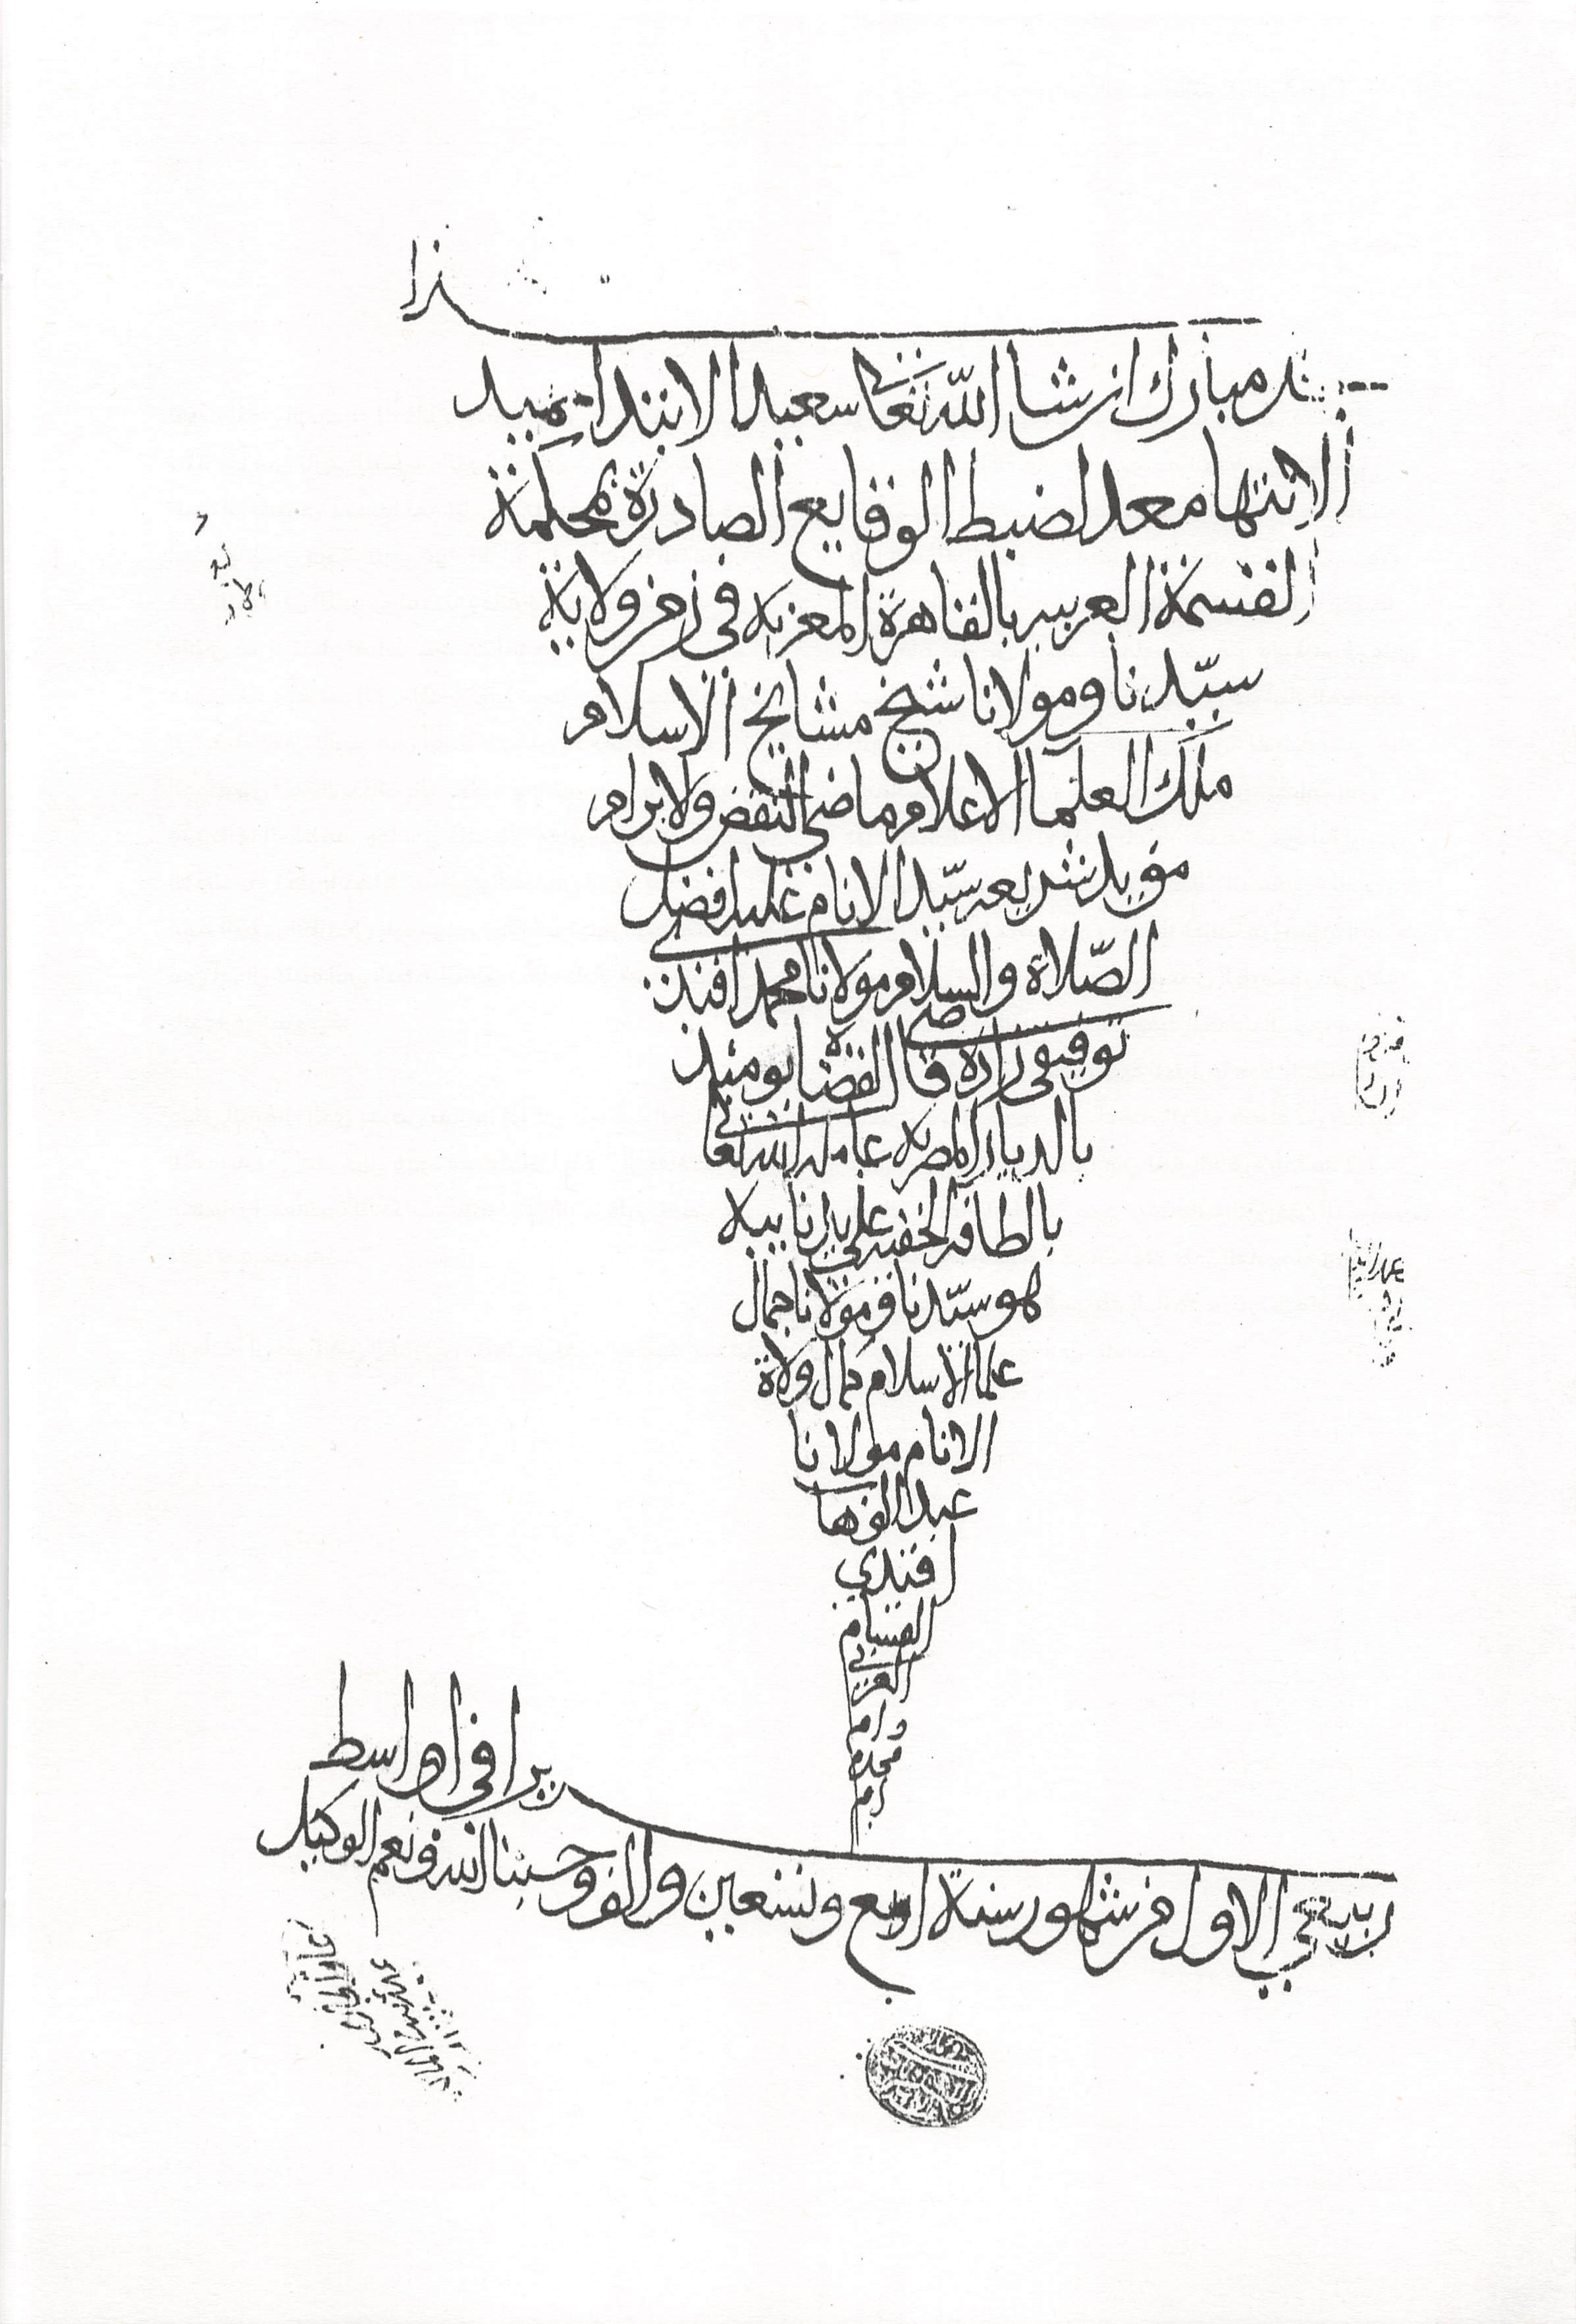 هذا
سجل مبارك ان شا الله تعالى سعيد الابتدا حميد
الانتها معد لضبط الوقايع الصادرة بمحكمة
القسمة العربيه بالقاهرة المعزيه في زمن ولاية
سيدنا ومولانا شيخ مشايخ الاسلام
ملك العلما الاعلام ماضي النقض والابرام
مؤيد شريعه سيد الانام عليه افضل
الصلاة والسلام مولانا محمد افندي
توفيقي زاده قاضي القضاة يومئذ
بالديار المصريه عامله الله تعالى
بالطافه الخفيه علي يد نايبه
هو سيدنا ومولانا جمال
علما الاسلام كمال ولاة
الانام مولانا
عبد الوهاب
افندي
القسام
العربي
دام
مجده
حرر في اواسط
ربيع الاول من شهور سنة اربع وتسعين والف وحسبنا الله ونعم الوكيل